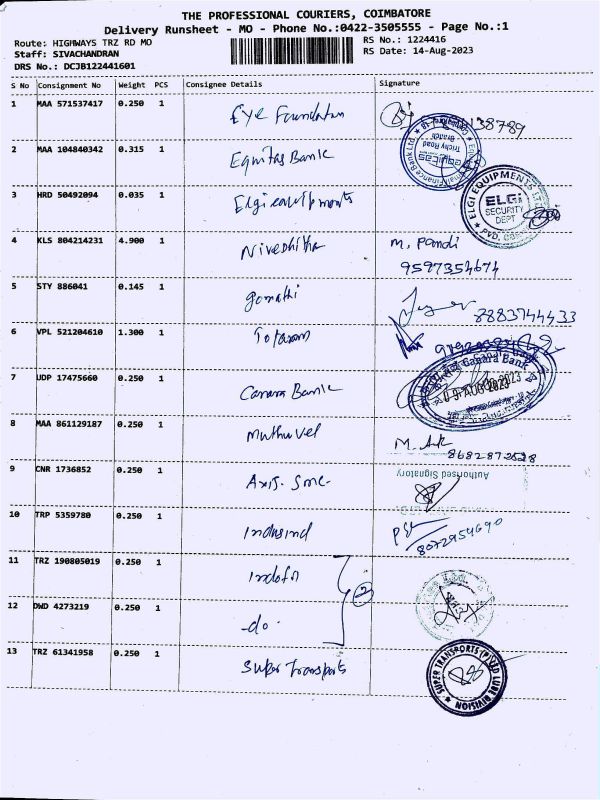 THE PROFESSIONAL COURIERS, COIMBATORE
Delivery Runsheet - MO - Phone No.:0422-3505555 - Page No.:1
Route: HIGHWAYS TRZ RD MO
RS No.: 1224416
Staff: SIVACHANDRAN
RS Date: 14-Aug-2023
DRS No.: DCJB122441601
S No Consignment No Weight PCS Consignee Details Signature
1 MAA 571537417 0.250 1 Eye Foundation
2 MAA 104840342 0.315 1 Equitas Bank
equitas Trichy Road Branch
3 HRD 50492094 0.035 1 Elgi equipments
ELGI EQUIPMENTS LTD
ELGi SECURITY DEPT
4 KLS 804214231 4.900 1 Nivedhitha M. Pandi
9597354674
5 STY 886041 0.145 1 gomathi 8883744433
6 VPL 521204610 1.300 1
7 UDP 17475660 0.250 1 Canara Bank
Canara Bank
8 MAA 861129187 0.250 1 Muthuvel
9 CNR 1736852 0.250 1 Axis. Sme-
Authorised Signatory
10 TRP 5359780 0.250 1 Indusind
8072954690
11 TRZ 190805019 0.250 1
2
12 DWD 4273219 0.250 1 -do-
13 TRZ 61341958 0.250 1 Super Transports
SUPER TRANSPORTS (P) LTD LUBE DIVISION